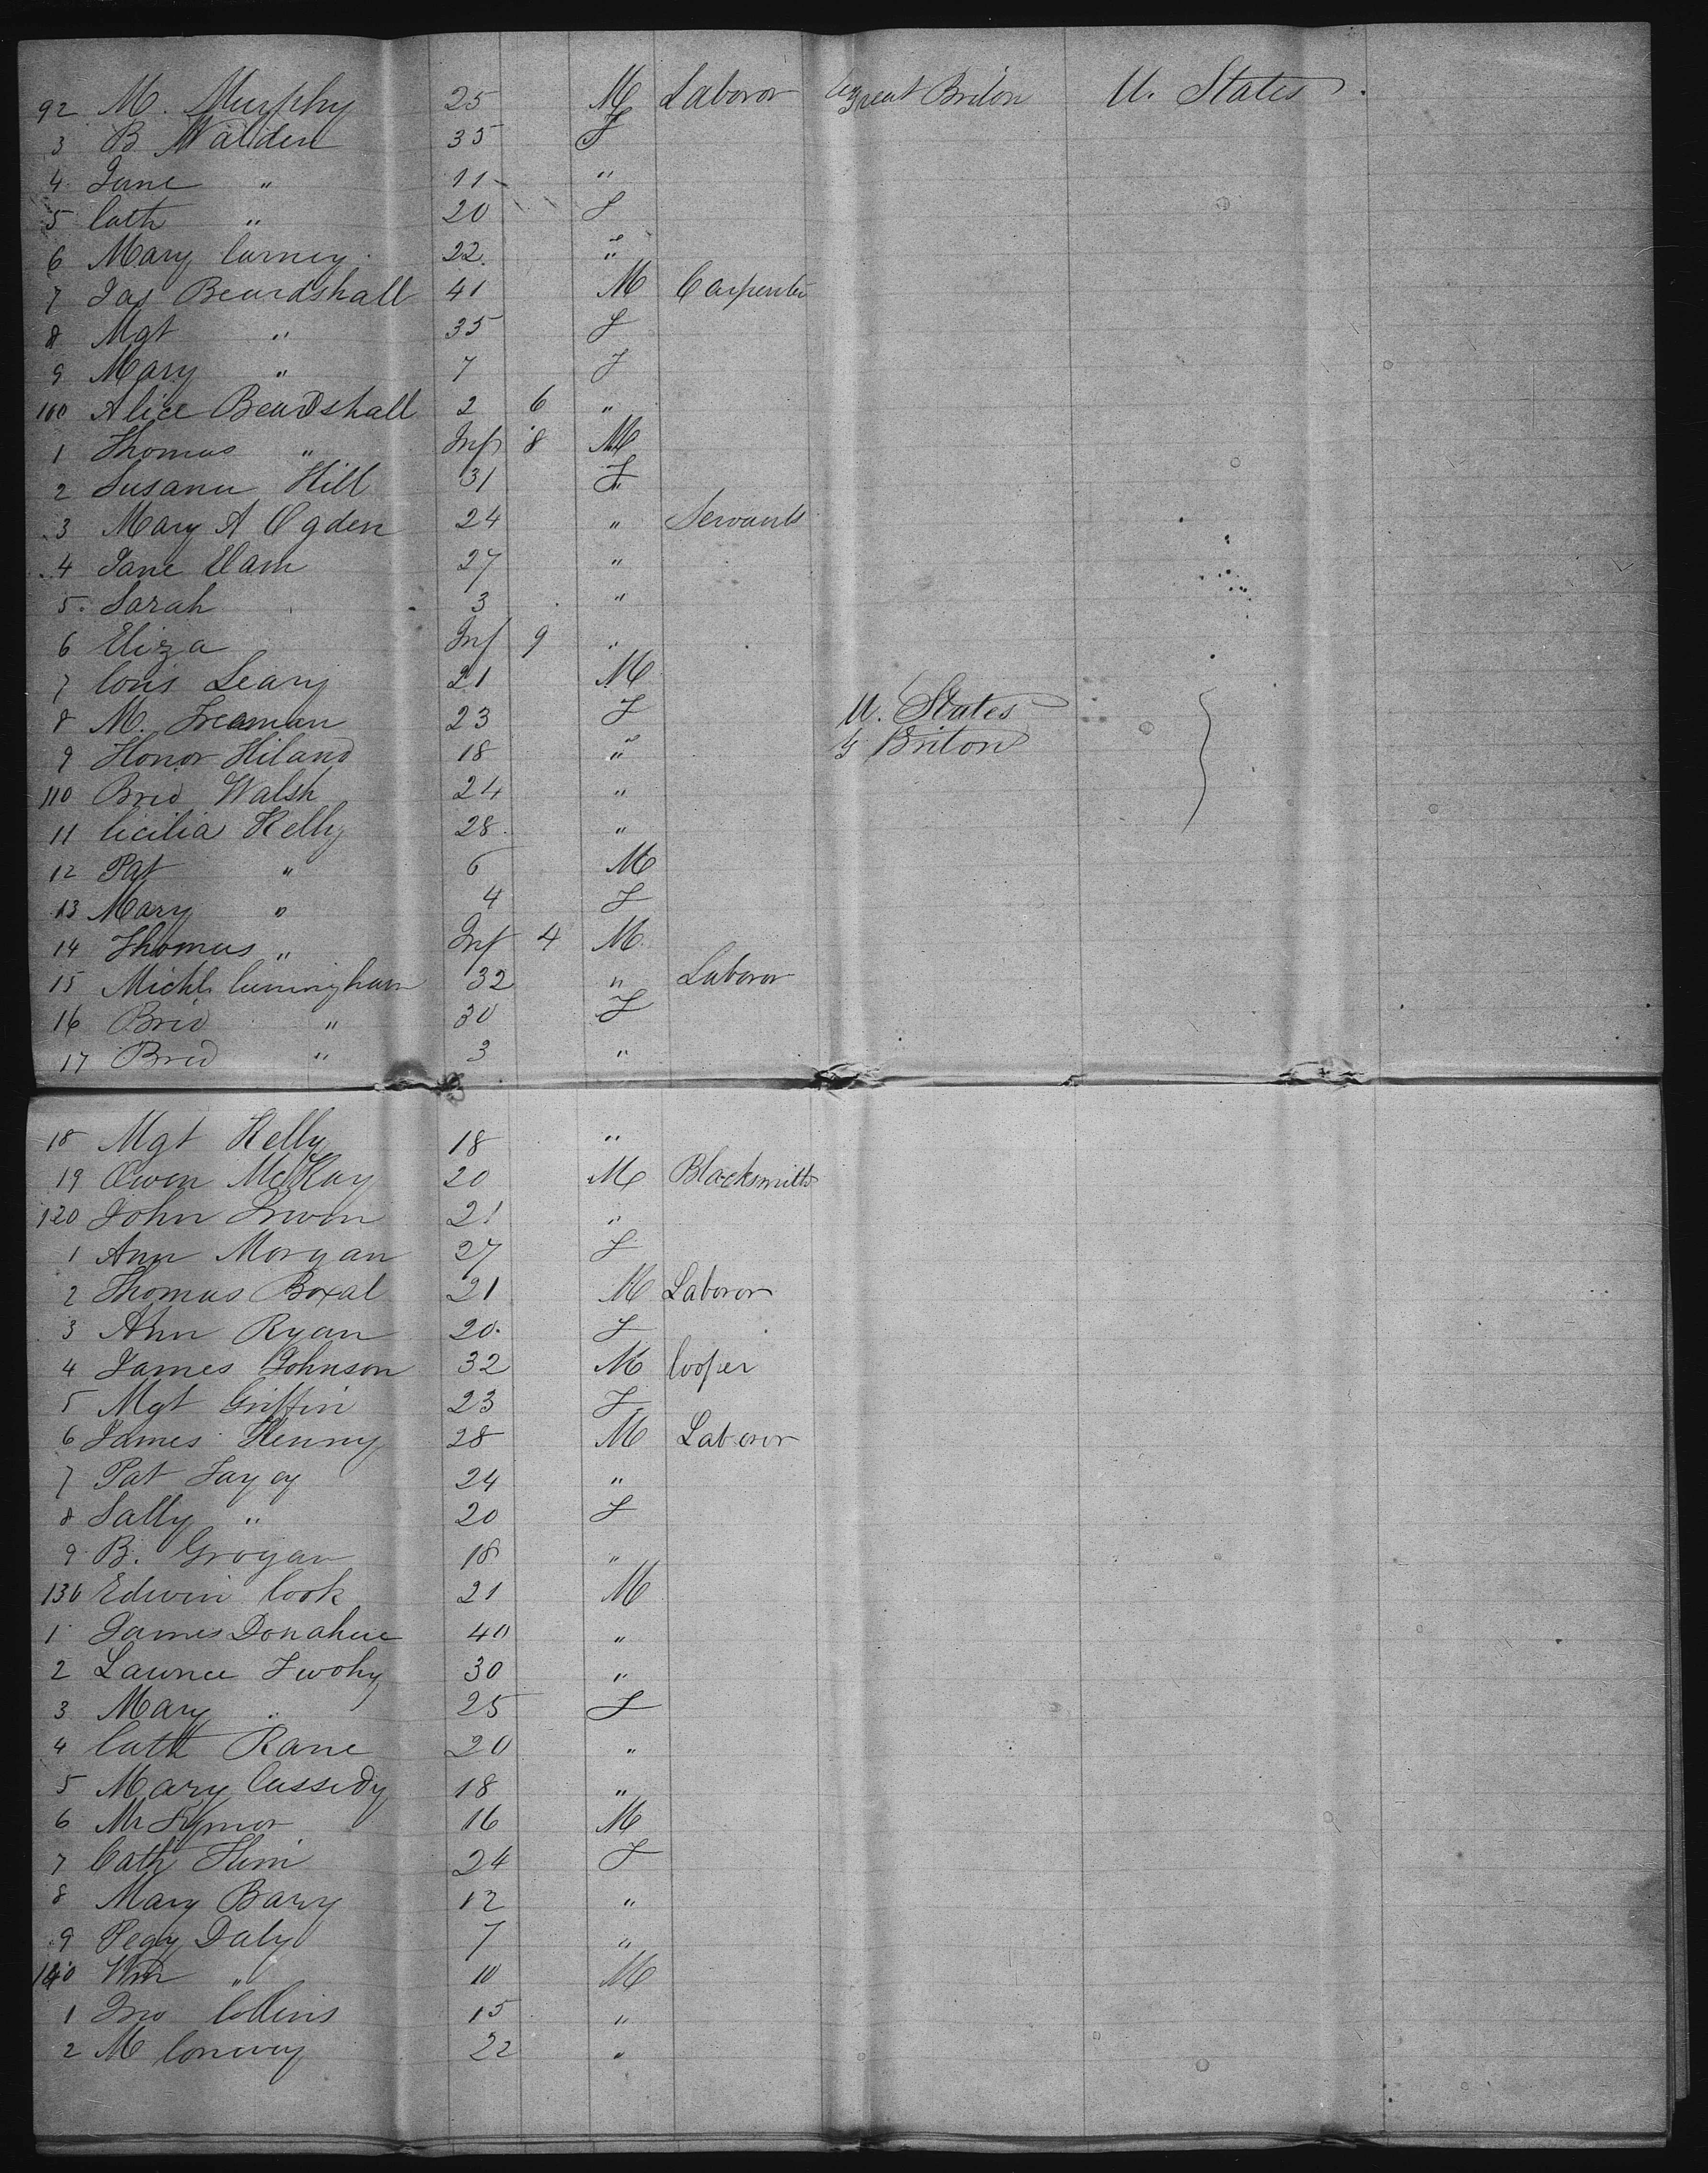 92 M. Murphy 25 M Laboror Great Briton U. States
3 B Walden 35 F
4 Jane " 11 "
5 Cath " 20 F
6 Mary Carney 22 "
7 Jas Beardshall 41 M Carpenter
8 Mgt " 35 F
9 Mary " 7 F
100 Alice Beardshall 2 6 "
1 Thomas " Inf 8 M
2 Susana Hill 31 F
3 Mary A Ogden 24 " Servants
4 Jane Elam 27 "
5 Sarah 3 "
6 Eliza Inf 9 "
7 Cors Leary 21 M
8 M. Freeman 23 F U. States
9 Honor Hiland 18 " G Briton
110 Brid Walsh 24 "
11 Cicilia Kelly 28 "
12 Pat " 6 M
13 Mary " 4 F
14 Thomas " Inf 4 M
15 Michl Cunningham 32 " Laboror
16 Brid " 30 F
17 Brid " 3 "
18 Mgt Kelly 18 "
19 Owen McKay 20 M Blacksmith
120 John Irwin 21 "
1 Ann Morgan 27 F
2 Thomas Boxal 21 M Laboror
3 Ann Ryan 20 F
4 James Johnson 32 M Cooper
5 Mgt Griffin 23 F
6 James Henny 28 M Laboror
7 Pat 24 "
8 Sally " 20 F
9 B. Grogan 18 "
130 Edwin Cook 21 M
1 James Donahue 40 "
2 Lawnce Twohy 30 "
3 Mary " 25 F
4 Cath Kane 20 "
5 Mary Cassidy 18 "
6 16 M
7 Cath 24 F
8 Mary Barry 12 "
9 Pegy Daly 7 "
140 Wm " 10 M
1 Jno Collins 15 "
2 M Conway 22 "